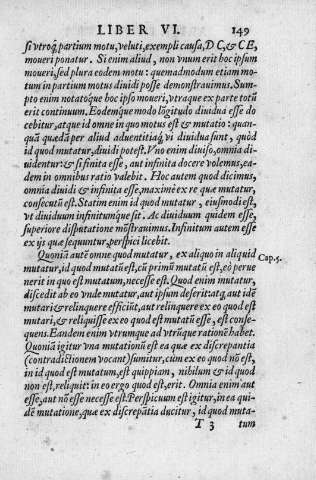 LIBER VI. 149
si vtroq; partium motu, veluti, exempli causa, D C, & C E,
moueri ponatur. Si enim aliud, non vnum erit hoc ipsum
moueri, sed plura eodem motu: quemadmodum etiam mo-
tum in partium motus diuidi posse demonstrauimus. Sum-
pto enim notatoq́ue hoc ipso moueri, vtraque ex parte totũ
erit continuum. Eodemque modo lõgitudo diuidua esse do
cebitur, atque id omne in quo motus est & mutatio: quan-
quã quædã per aliud aduentitiaq́; vi diuidua sunt, quòd
id quod mutatur, diuidi potest. Vno enim diuiso, omnia di-
uidentur: & si finita esse, aut infinita docere volemus, ea-
dem in omnibus ratio valebit. Hoc autem quod dicimus,
omnia diuidi & infinita esse, maximè ex re quæ mutatur,
consecutũ est. Statim enim id quod mutatur, eiusmodi est,
vt diuiduum infinitumque sit. Ac diuiduum quidem esse,
superiore disputatione mõstrauimus. Infinitum autem esse
ex ijs quæ sequuntur, perspici licebit.
Quoniã autẽ omne quod mutatur, ex aliquo in aliquid
mutatur, id quod mutatũ est, cũ primũ mutatũ est, eò perue
nerit in quo est mutatum, necesse est. Quod enim mutatur,
discedit ab eo vnde mutatur, aut ipsum deserit: atq; aut idẽ
mutari & relinquere efficiũt, aut relinquere ex eo quod est
mutari, & reliquisse ex eo quod est mutatũ esse, est conse-
quens. Eandem enim vtrumque ad vtrũque rationẽ habet.
Quoniã igitur vna mutationũ est ea quæ ex discrepantia
(contradictionem vocant) sumitur, cum ex eo quod nõ est,
in id quod est mutatum, est quippiam, nihilum & id quod
non est, reliquit: in eo ergo quod est, erit. Omnia enim aut
esse, aut nõ esse necesse est. Perspicuum est igitur, in ea qui-
dẽ mutatione, quæ ex discrepãtia ducitur, id quod muta-
T 3 tum
Cap. 5.